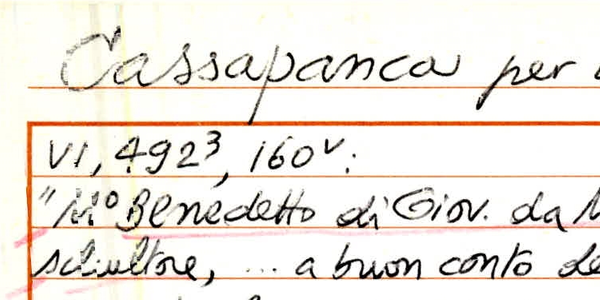 Cassapanca per
VI, 492³, 160v:
"Mº Benedetto di Giov. da
schultore, ... a buon conto de